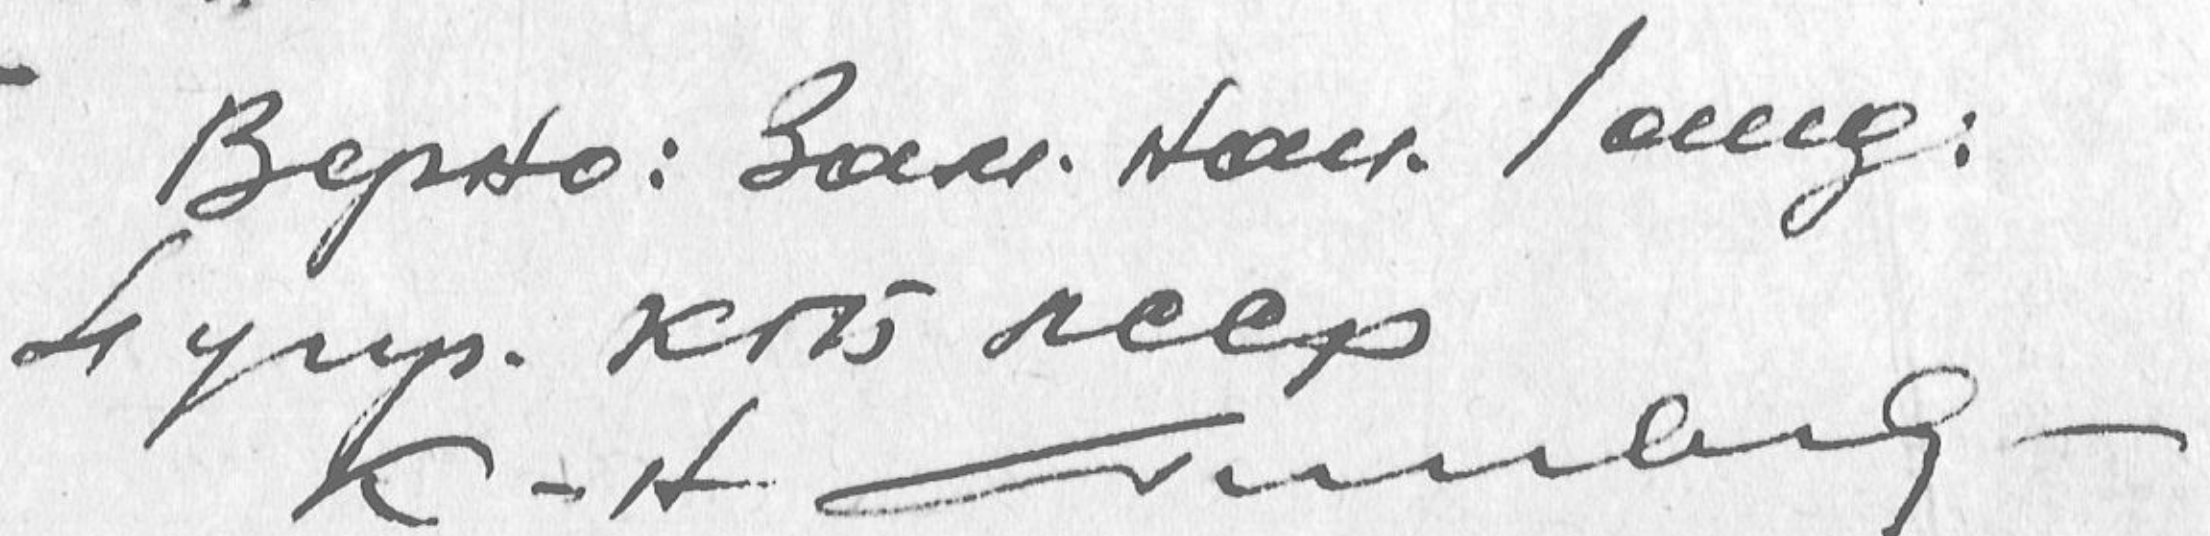 Верно: Зам. нач. 1 отд.
4 упр. КГБ ЛССР
К-н